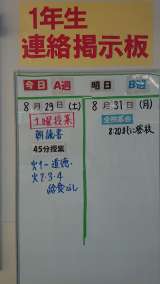 1年生
連絡掲示板
今日 A週 明日 B週
8月29日(土) 8月31日(月)
土曜授業 全校集会
朝読書 8:20までに登校
45分授業
火1→道徳
火2・3・4
給食なし